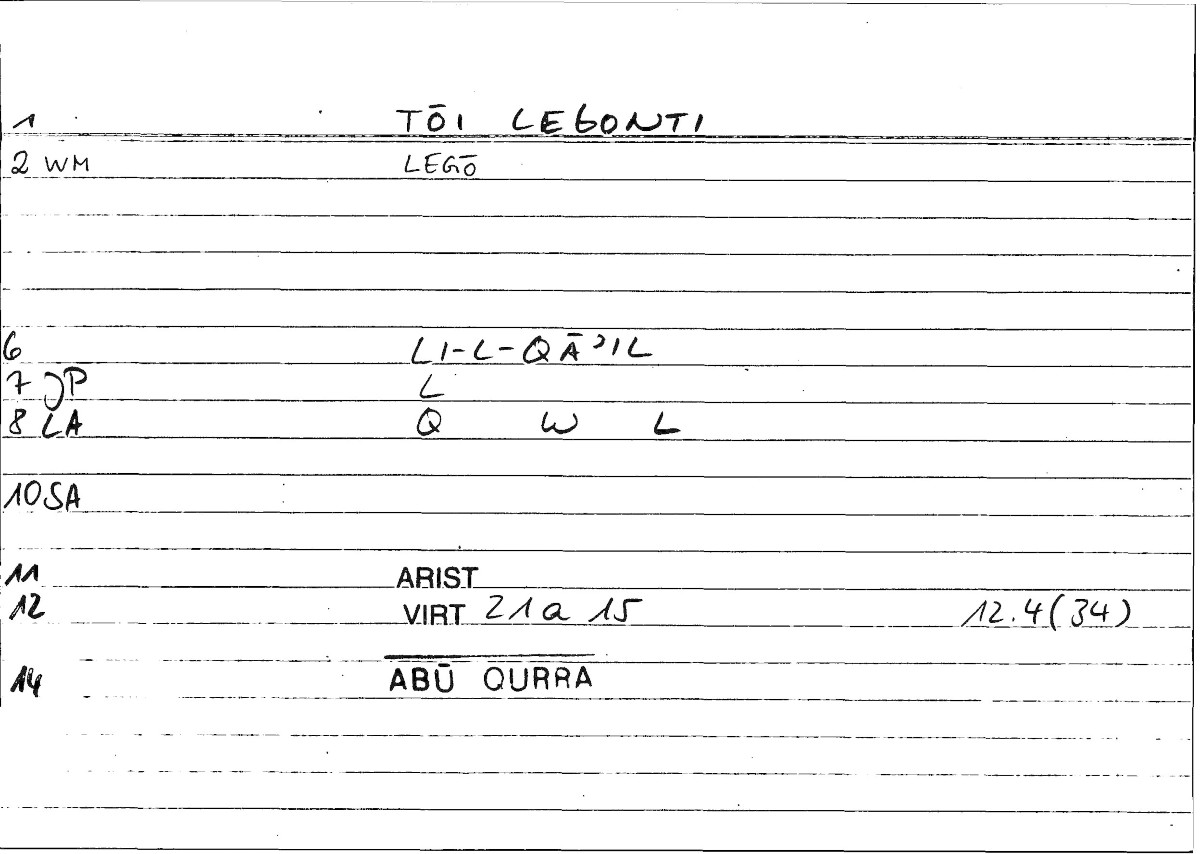 1 TŌI LEGONTI
2 WM LEGŌ
6 LI-L-QĀʾIL
7 JP L
8 LA Q W L
10 SA
11 ARIST
12 VIRT 21a 15 12.4(34)
14 ABŪ QURRA